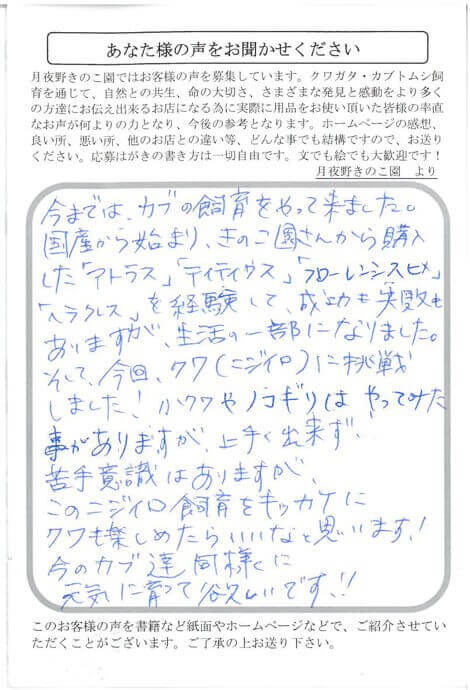 あなた様の声をお聞かせください
月夜野きのこ園ではお客様の声を募集しています。クワガタ・カブトムシ飼
育を通じて、自然との共生、命の大切さ、さまざまな発見と感動をより多く
の方達にお伝え出来るお店になる為に実際に用品をお使い頂いた皆様の率直
なお声が何よりの力となり、今後の参考となります。ホームページの感想、
良い所、悪い所、他のお店との違い等、どんな事でも結構ですので、お送り
ください。応募はがきの書き方は一切自由です。文でも絵でも大歓迎です！
月夜野きのこ園　より
今までは、カブの飼育をやって来ました。
国産から始まり、きのこ園さんから購入
した「アトラス」「ティティウス」「フローレンシスヒメ」
「ヘラクレス」を経験して、成功も失敗も
ありますが、生活の一部になりました。
そして、今回、クワ（ニジイロ）に挑戦
しました！ 小クワやノコギリは やってみた
事がありますが、上手く出来ず、
苦手意識はありますが、
このニジイロ飼育をキッカケに
クワも楽しめたらいいなと思います！
今のカブ達同様に
元気に育って欲しいです！！
このお客様の声を書籍など紙面やホームページなどで、ご紹介させてい
ただくことがございます。ご了承の上お送り下さい。